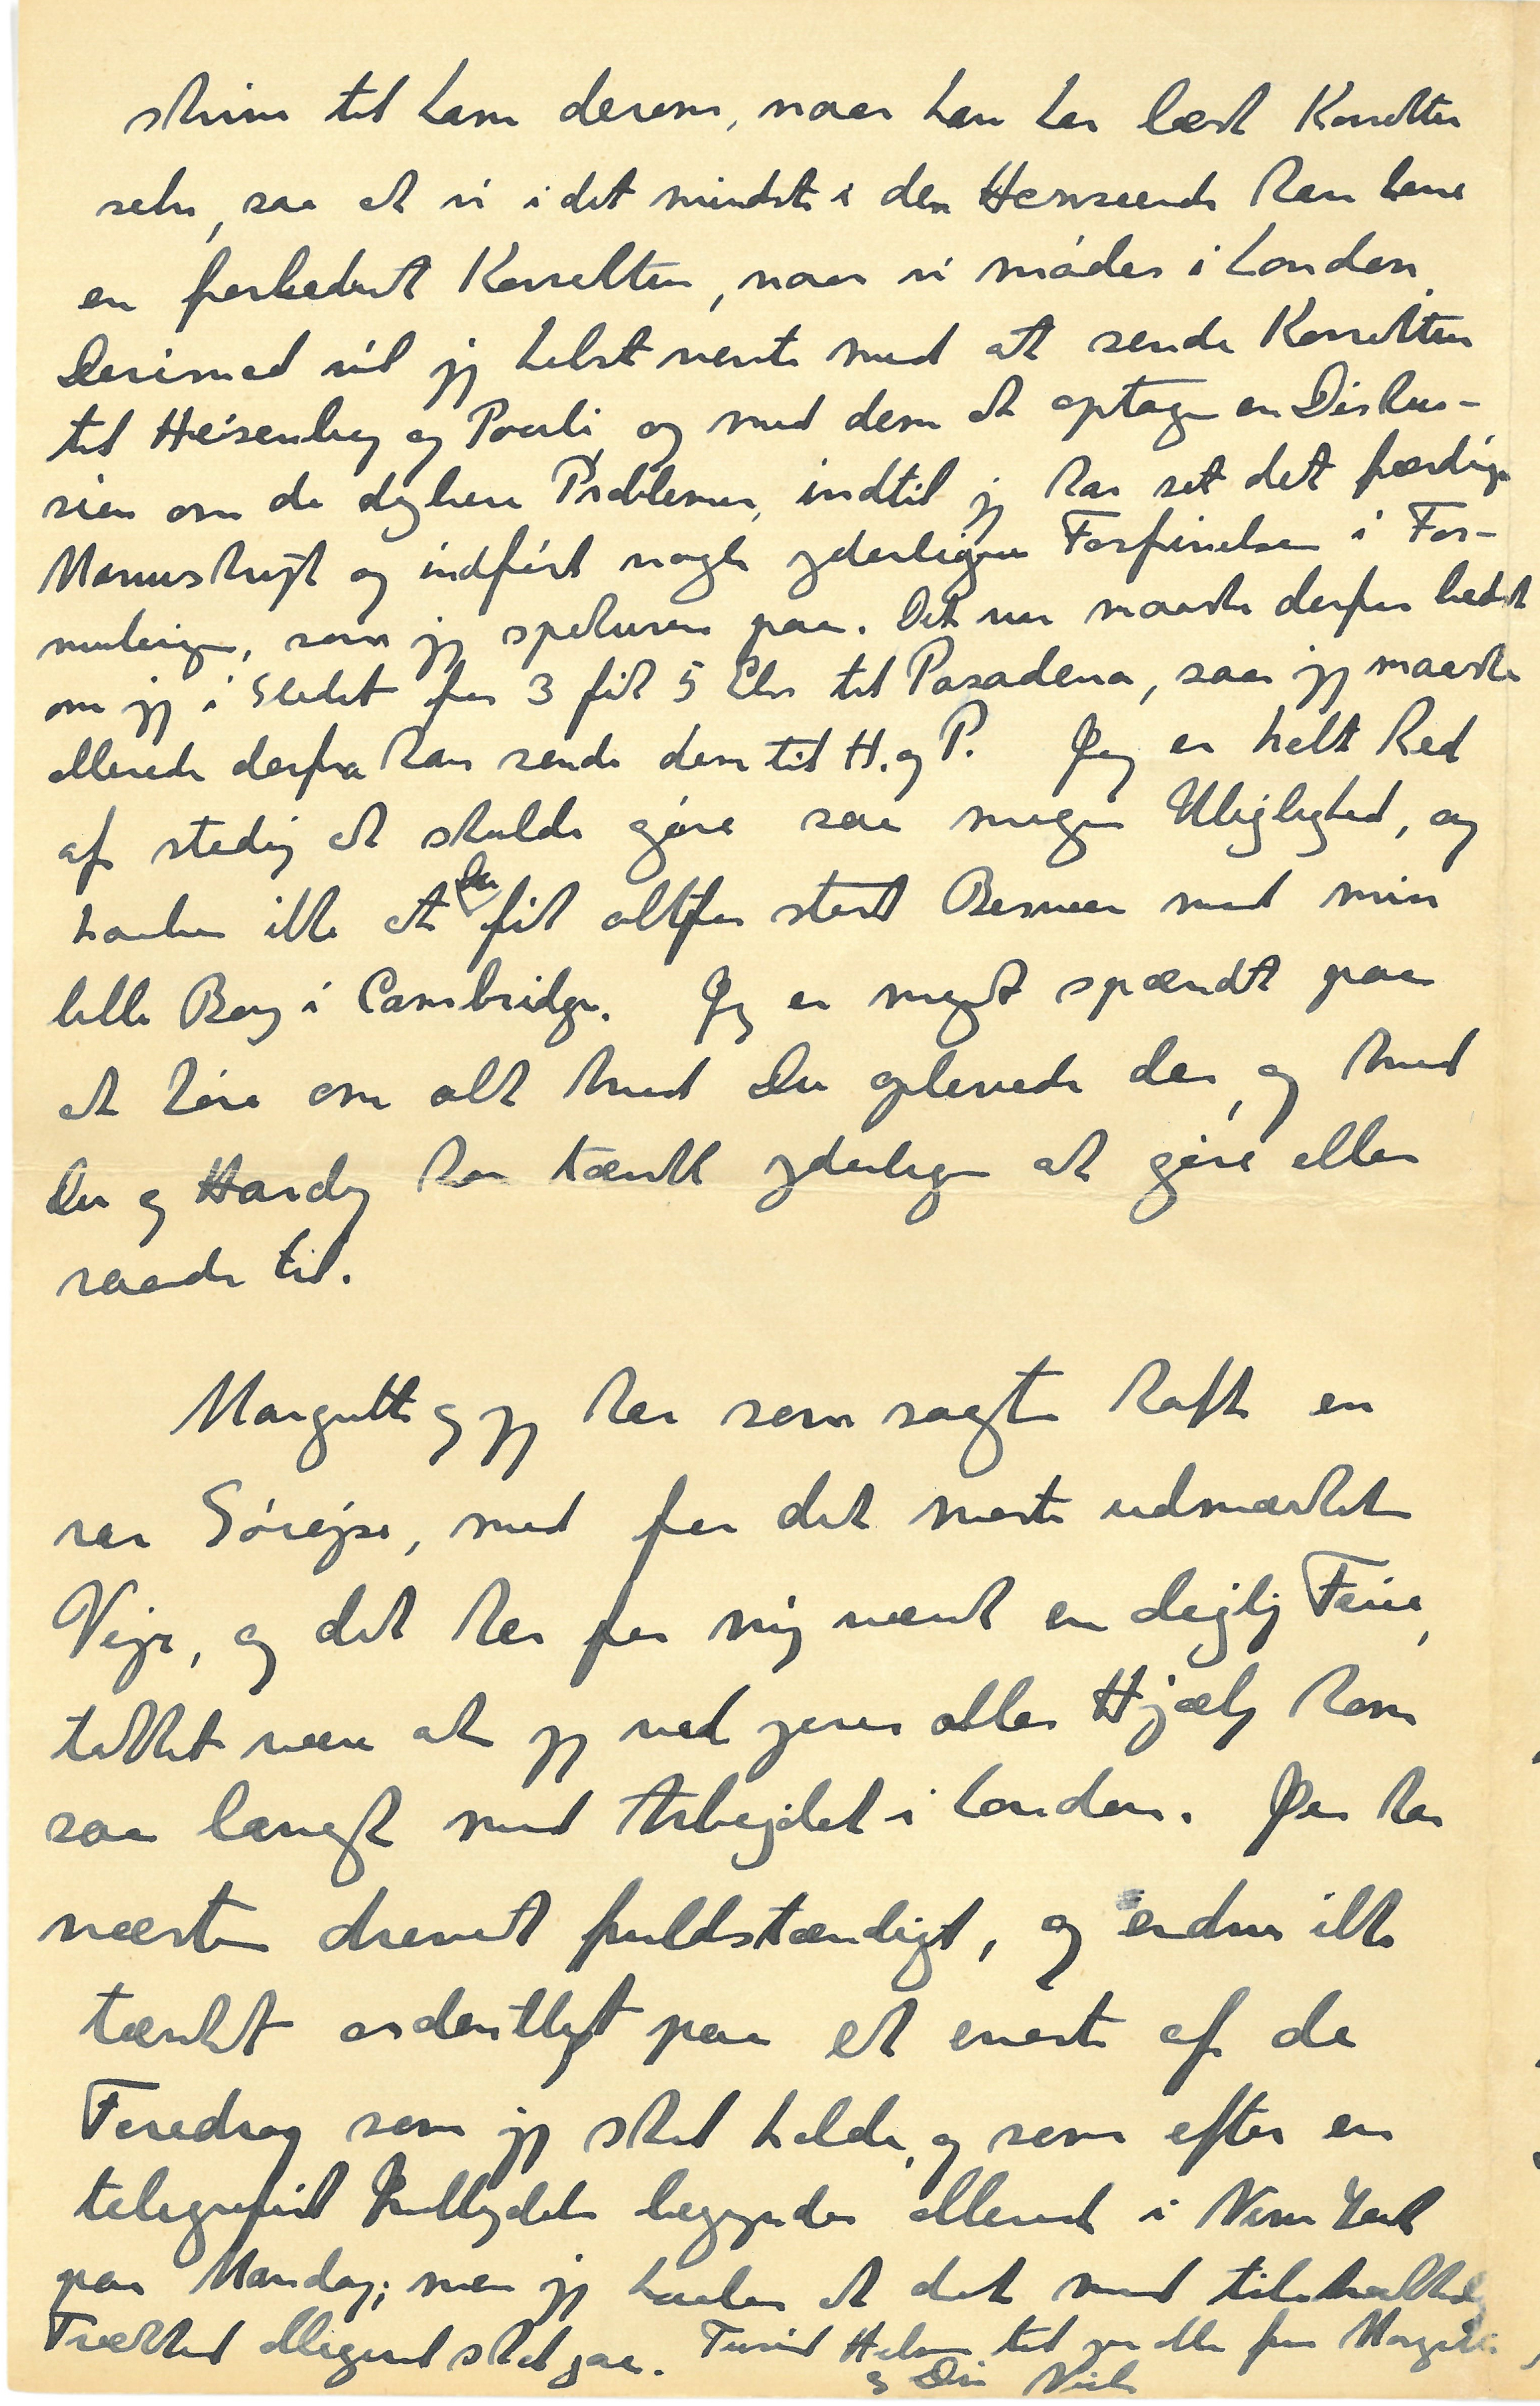 skrive til ham derom, naar han har læst Korrekturen
selv, saa at vi i det mindste i den Henseende kan have
en forbedret Korrektur, naar vi mødes i London.
Derimod vil jeg helst vente med at sende Korrekturen
til Heisenberg og Pauli, og med dem at optage en Diskus-
sion om de dybere Problemer, indtil jeg har set det færdige
Manuskript og indført nogle yderligere Forfinelser i For-
muleringen, som jeg spekulerer paa. Det var maaske derfor bedst
om jeg i Stedet for 3 fik 5 Eks til Pasadena, saa jeg maaske
allerede derfra kan sende dem til H. og P. Jeg er helt ked
af stadig at skulde gøre saa megen Ulejlighed, og
haaber ikke at Du fik altfor stort Besvær med min
lille Bog i Cambridge. Jeg er meget spændt paa
at høre om alt hvad Du oplevede der, og hvad
Du og Hardy har tænkt yderligere at gøre eller
raade til.
Margrethe og jeg har som sagt haft en
rar Sørejse, med for det meste udmærket
Vejr, og det har for mig været en dejlig Ferie,
takket være at jeg ved jeres alles Hjælp kom
saa langt med Arbejdet i London. Jeg har
næsten drevet fuldstændigt, og endnu ikke
tænkt ordentligt paa et eneste af de
Foredrag som jeg skal holde, og som efter en
telegrafisk begynder allerede i New York
paa Mandag; men jeg haaber at det med
alligevel skal gaa. Tusind Hilsner til jer alle fra Margrethe
og Din Niels